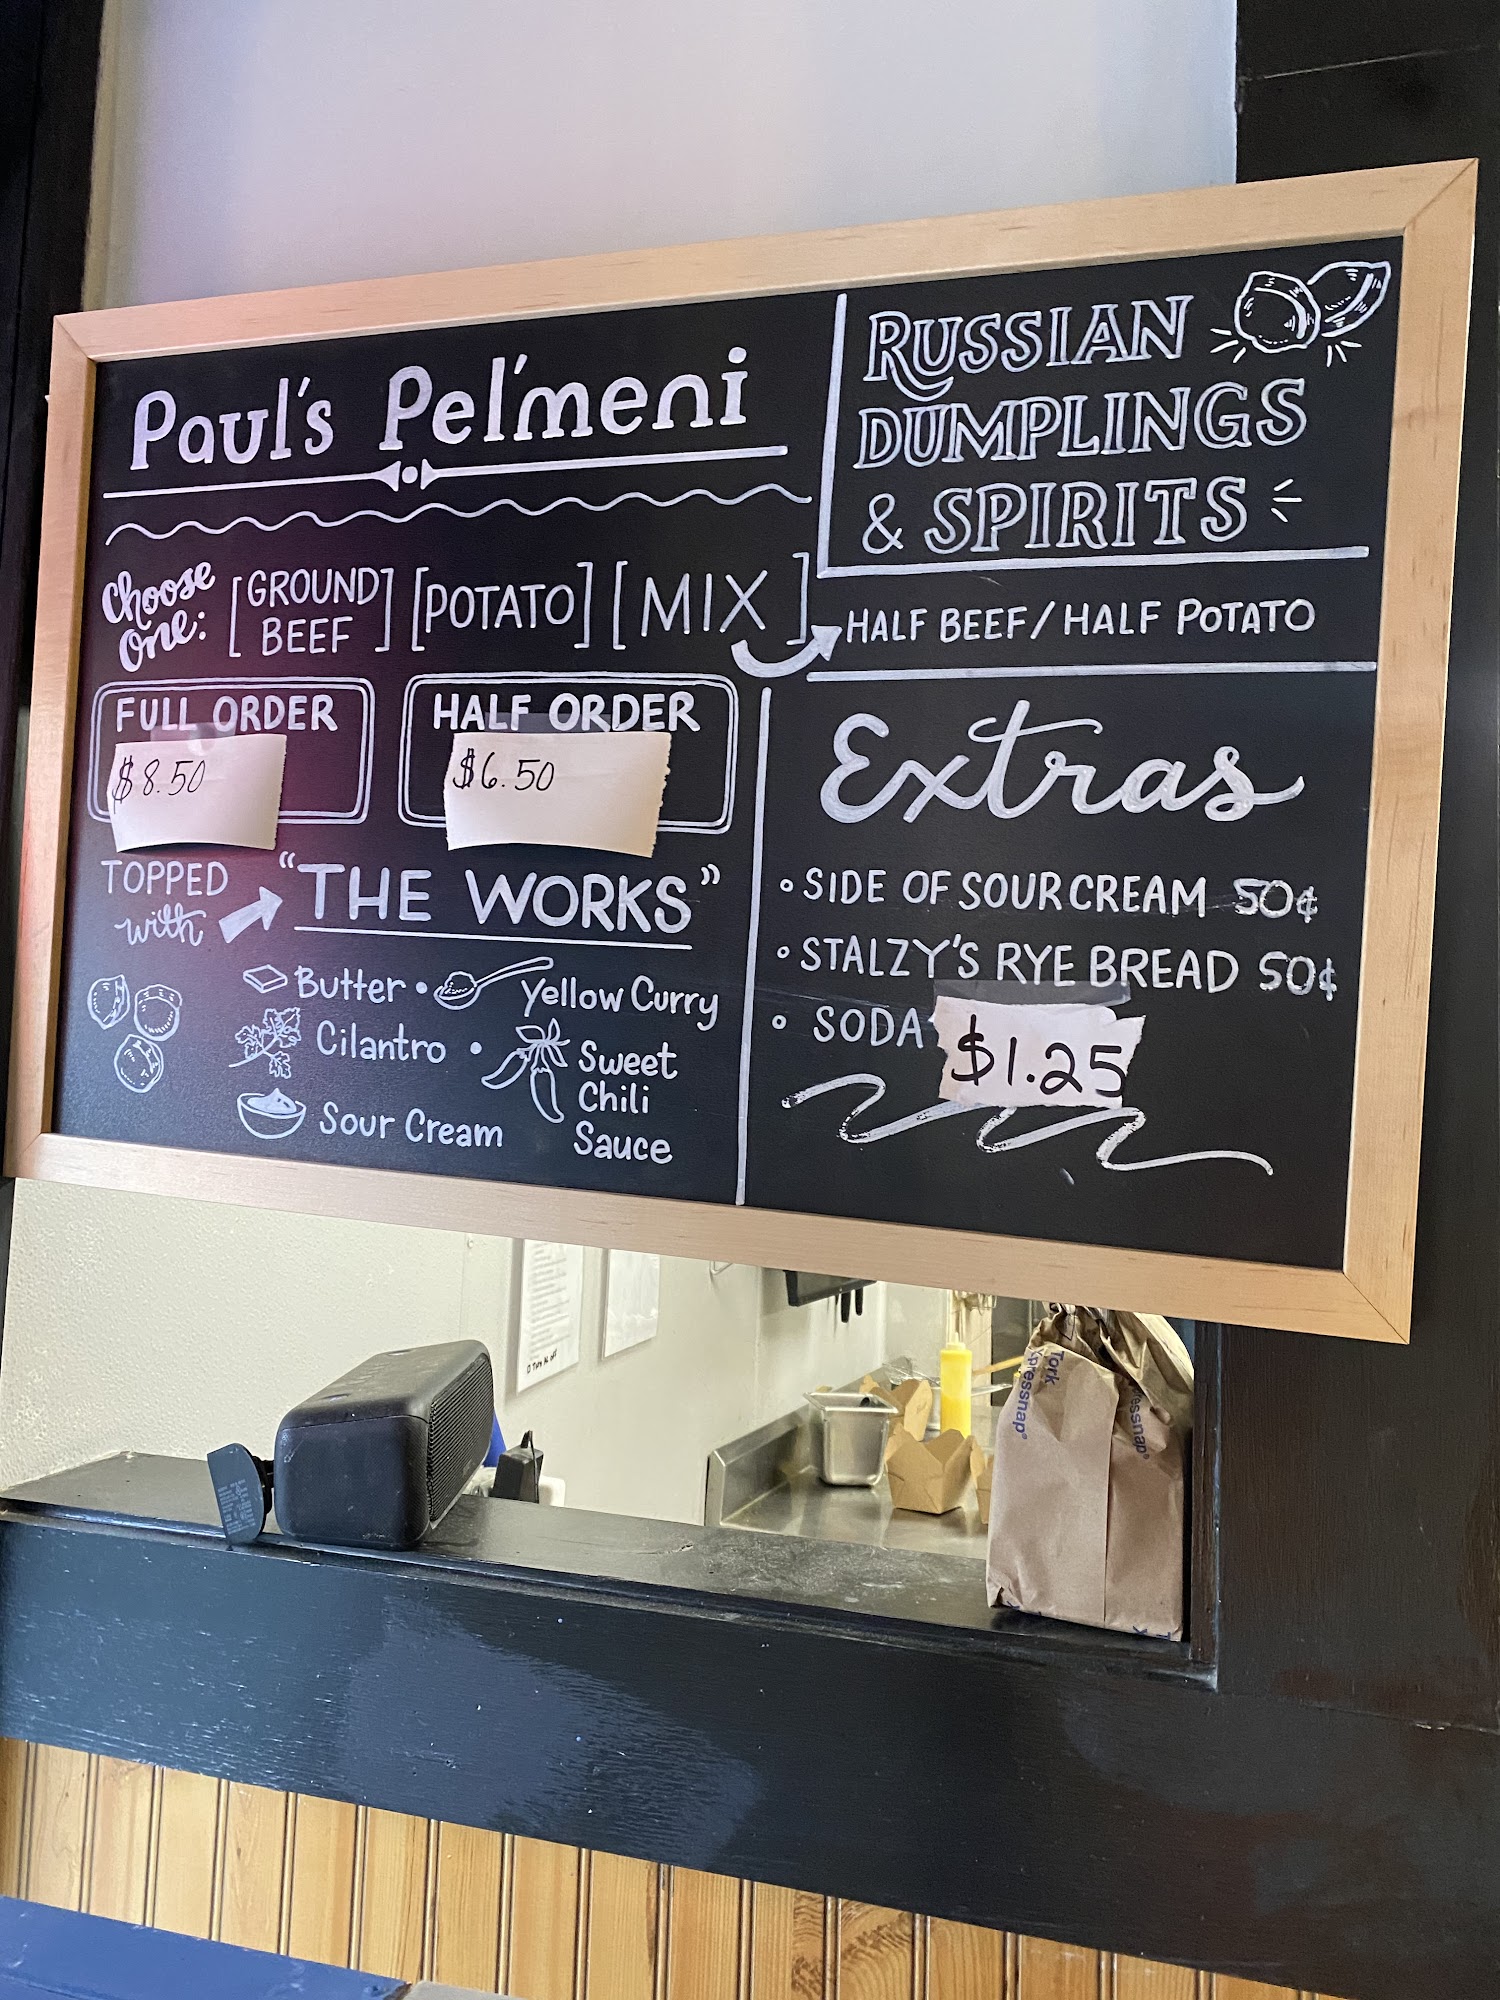 Paul's Pel'meni
RUSSIAN
DUMPLINGS
& SPIRITS
Choose
one:
[GROUND
BEEF]
[POTATO]
[MIX]
HALF BEEF/HALF POTATO
FULL ORDER
$8.50
HALF ORDER
$6.50
TOPPED
with
"THE WORKS"
Butter • Yellow Curry
Cilantro • Sweet
Chili
Sauce
Sour Cream
Extras
• SIDE OF SOUR CREAM 50¢
• STALZY'S RYE BREAD 50¢
• SODA $1.25
Tork
Xpressnap®